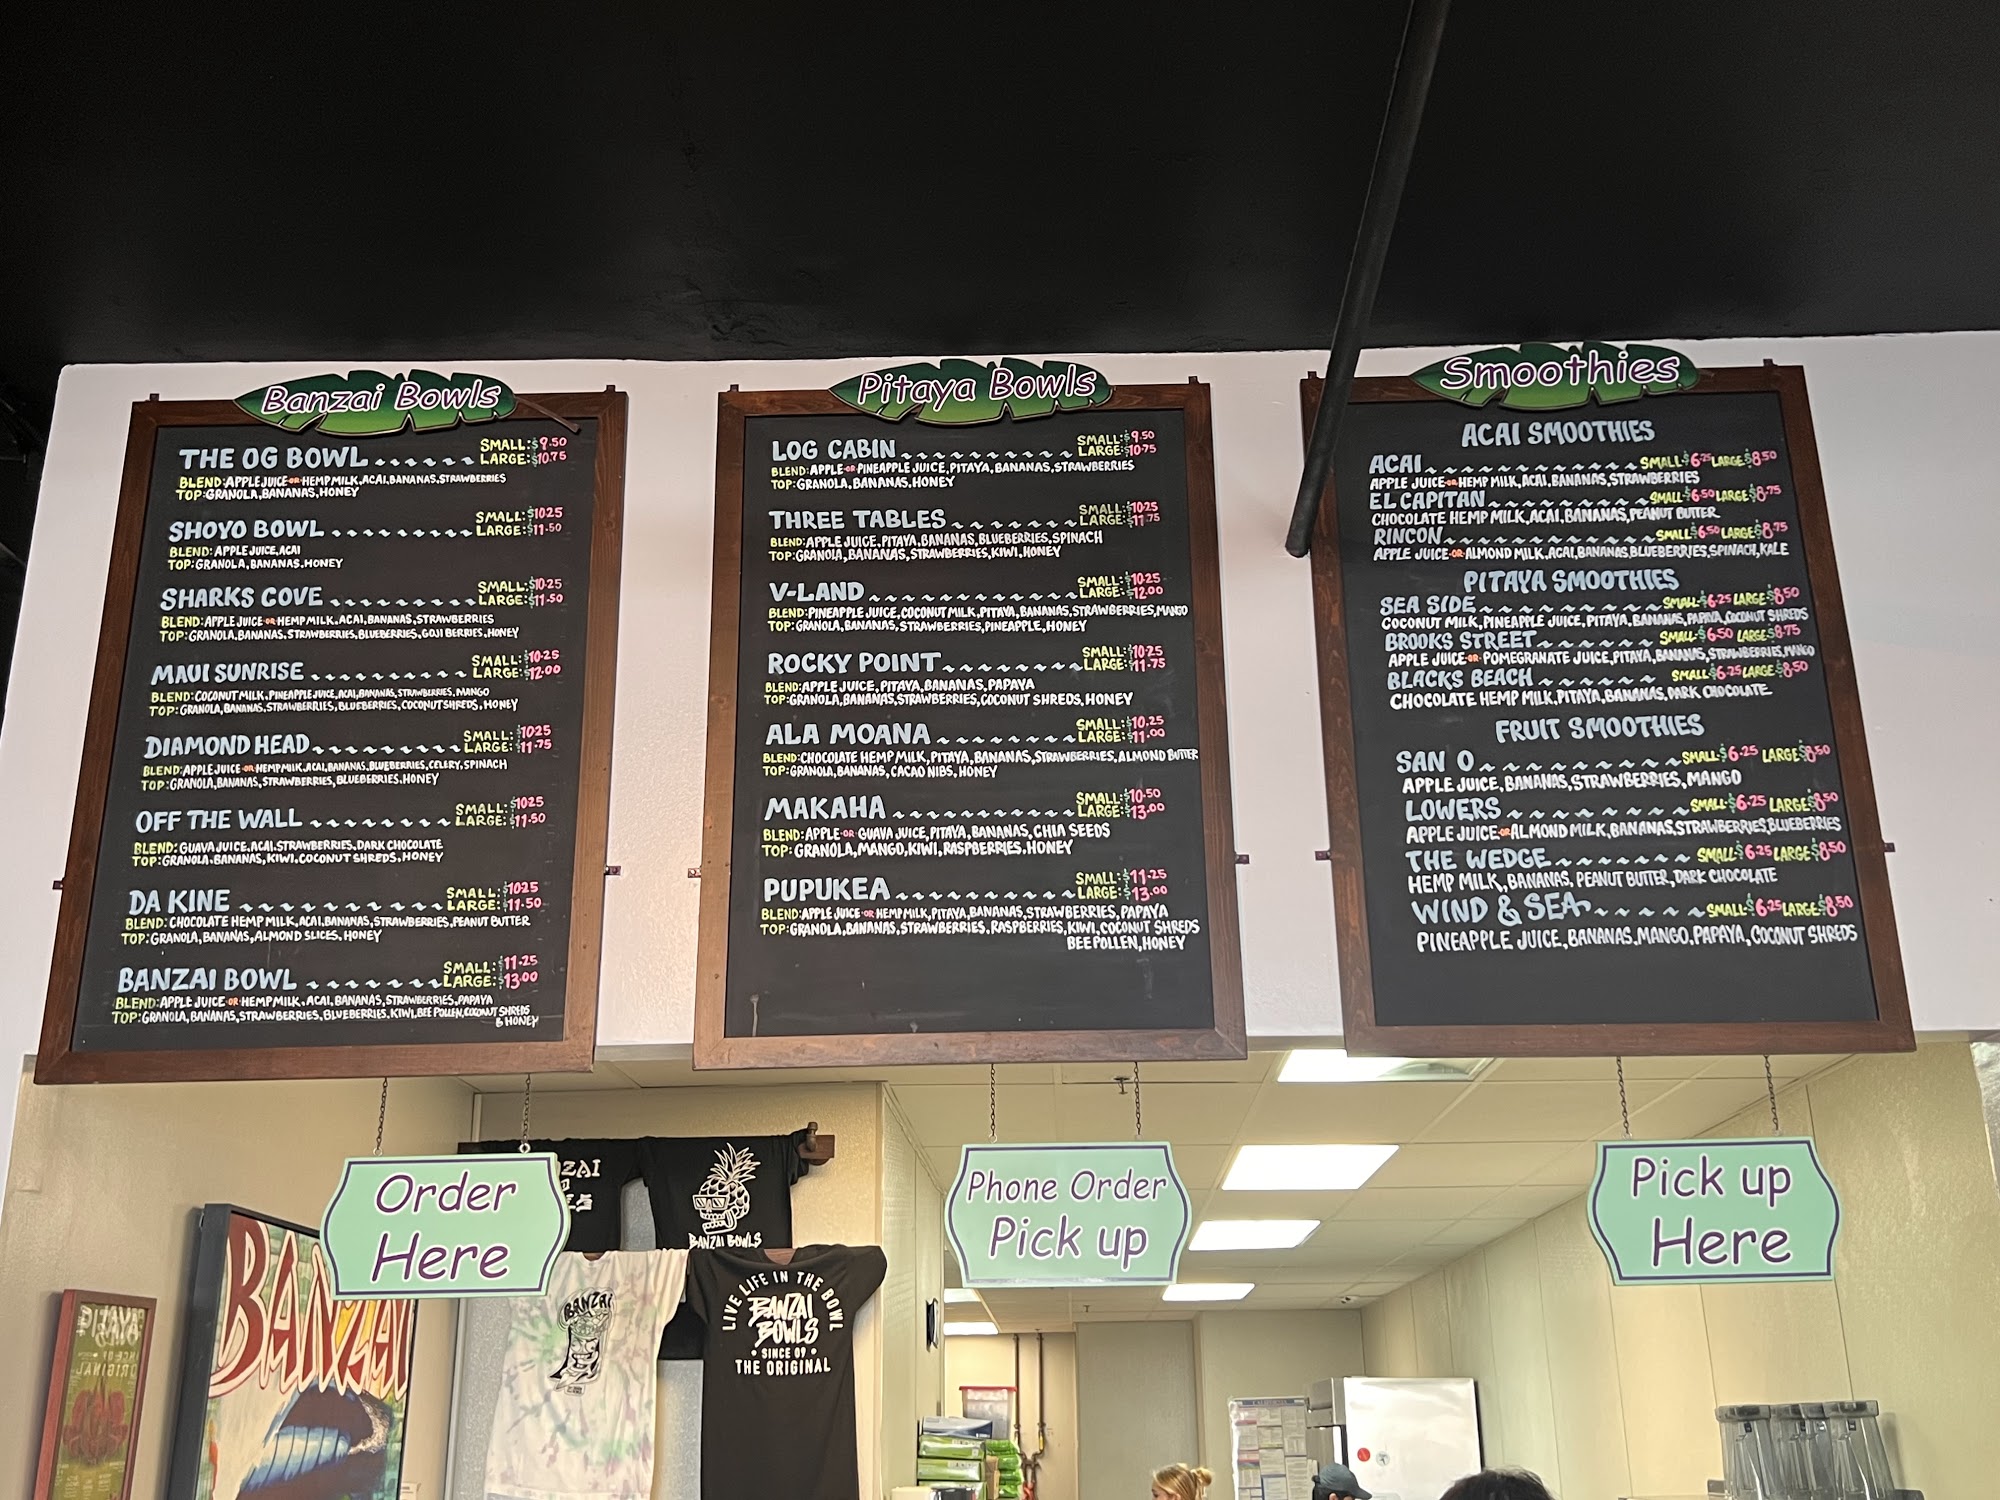 Banzai Bowls
THE OG BOWL SMALL: $9.50
LARGE: $10.75
BLEND: APPLE JUICE OR HEMP MILK, ACAI, BANANAS, STRAWBERRIES
TOP: GRANOLA, BANANAS, HONEY
SHOYO BOWL SMALL: $10.25
LARGE: $11.50
BLEND: APPLE JUICE, ACAI
TOP: GRANOLA, BANANAS, HONEY
SHARKS COVE SMALL: $10.25
LARGE: $11.50
BLEND: APPLE JUICE OR HEMP MILK, ACAI, BANANAS, STRAWBERRIES
TOP: GRANOLA, BANANAS, STRAWBERRIES, BLUEBERRIES, GOJI BERRIES, HONEY
MAUI SUNRISE SMALL: $10.25
LARGE: $12.00
BLEND: COCONUT MILK, PINEAPPLE JUICE, ACAI, BANANAS, STRAWBERRIES, MANGO
TOP: GRANOLA, BANANAS, STRAWBERRIES, BLUEBERRIES, COCONUT SHREDS, HONEY
DIAMOND HEAD SMALL: $10.25
LARGE: $11.75
BLEND: APPLE JUICE OR HEMP MILK, ACAI, BANANAS, BLUEBERRIES, CELERY, SPINACH
TOP: GRANOLA, BANANAS, STRAWBERRIES, BLUEBERRIES, HONEY
OFF THE WALL SMALL: $10.25
LARGE: $11.50
BLEND: GUAVA JUICE, ACAI, STRAWBERRIES, DARK CHOCOLATE
TOP: GRANOLA, BANANAS, KIWI, COCONUT SHREDS, HONEY
DA KINE SMALL: $10.25
LARGE: $11.50
BLEND: CHOCOLATE HEMP MILK, ACAI, BANANAS, STRAWBERRIES, PEANUT BUTTER
TOP: GRANOLA, BANANAS, ALMOND SLICES, HONEY
BANZAI BOWL SMALL: $11.25
LARGE: $13.00
BLEND: APPLE JUICE OR HEMP MILK, ACAI, BANANAS, STRAWBERRIES, PAPAYA
TOP: GRANOLA, BANANAS, STRAWBERRIES, BLUEBERRIES, KIWI, BEE POLLEN, COCONUT SHREDS
& HONEY
Pitaya Bowls
LOG CABIN SMALL: $9.50
LARGE: $10.75
BLEND: APPLE OR PINEAPPLE JUICE, PITAYA, BANANAS, STRAWBERRIES
TOP: GRANOLA, BANANAS, HONEY
THREE TABLES SMALL: $10.25
LARGE: $11.75
BLEND: APPLE JUICE, PITAYA, BANANAS, BLUEBERRIES, SPINACH
TOP: GRANOLA, BANANAS, STRAWBERRIES, KIWI, HONEY
V-LAND SMALL: $10.25
LARGE: $12.00
BLEND: PINEAPPLE JUICE, COCONUT MILK, PITAYA, BANANAS, STRAWBERRIES, MANGO
TOP: GRANOLA, BANANAS, STRAWBERRIES, PINEAPPLE, HONEY
ROCKY POINT SMALL: $10.25
LARGE: $11.75
BLEND: APPLE JUICE, PITAYA, BANANAS, PAPAYA
TOP: GRANOLA, BANANAS, STRAWBERRIES, COCONUT SHREDS, HONEY
ALA MOANA SMALL: $10.25
LARGE: $11.00
BLEND: CHOCOLATE HEMP MILK, PITAYA, BANANAS, STRAWBERRIES, ALMOND BUTTER
TOP: GRANOLA, BANANAS, CACAO NIBS, HONEY
MAKAHA SMALL: $10.50
LARGE: $13.00
BLEND: APPLE OR GUAVA JUICE, PITAYA, BANANAS, CHIA SEEDS
TOP: GRANOLA, MANGO, KIWI, RASPBERRIES, HONEY
PUPUKEA SMALL: $11.25
LARGE: $13.00
BLEND: APPLE JUICE OR HEMP MILK, PITAYA, BANANAS, STRAWBERRIES, PAPAYA
TOP: GRANOLA, BANANAS, STRAWBERRIES, RASPBERRIES, KIWI, COCONUT SHREDS
BEE POLLEN, HONEY
Smoothies
ACAI SMOOTHIES
ACAI SMALL $6.25 LARGE $8.50
APPLE JUICE OR HEMP MILK, ACAI, BANANAS, STRAWBERRIES
EL CAPITAN SMALL $6.50 LARGE $8.75
CHOCOLATE HEMP MILK, ACAI, BANANAS, PEANUT BUTTER
RINCON SMALL $6.50 LARGE $8.75
APPLE JUICE OR ALMOND MILK, ACAI, BANANAS, BLUEBERRIES, SPINACH, KALE
PITAYA SMOOTHIES
SEA SIDE SMALL $6.25 LARGE $8.50
COCONUT MILK, PINEAPPLE JUICE, PITAYA, BANANAS, PAPAYA, COCONUT SHREDS
BROOKS STREET SMALL $6.50 LARGE $8.75
APPLE JUICE OR POMEGRANATE JUICE, PITAYA, BANANAS, STRAWBERRIES, MANGO
BLACKS BEACH SMALL $6.25 LARGE $8.50
CHOCOLATE HEMP MILK, PITAYA, BANANAS, DARK CHOCOLATE
FRUIT SMOOTHIES
SAN O SMALL $6.25 LARGE $8.50
APPLE JUICE, BANANAS, STRAWBERRIES, MANGO
LOWERS SMALL $6.25 LARGE $8.50
APPLE JUICE OR ALMOND MILK, BANANAS, STRAWBERRIES, BLUEBERRIES
THE WEDGE SMALL $6.25 LARGE $8.50
HEMP MILK, BANANAS, PEANUT BUTTER, DARK CHOCOLATE
WIND & SEA SMALL $6.25 LARGE $8.50
PINEAPPLE JUICE, BANANAS, MANGO, PAPAYA, COCONUT SHREDS
Order
Here
Phone Order
Pick up
Pick up
Here
BANZAI BOWLS
BANZAI
BANZAI
LIVE LIFE IN THE BOWL
BANZAI
BOWLS
• SINCE 09 •
THE ORIGINAL
ORIGINAL